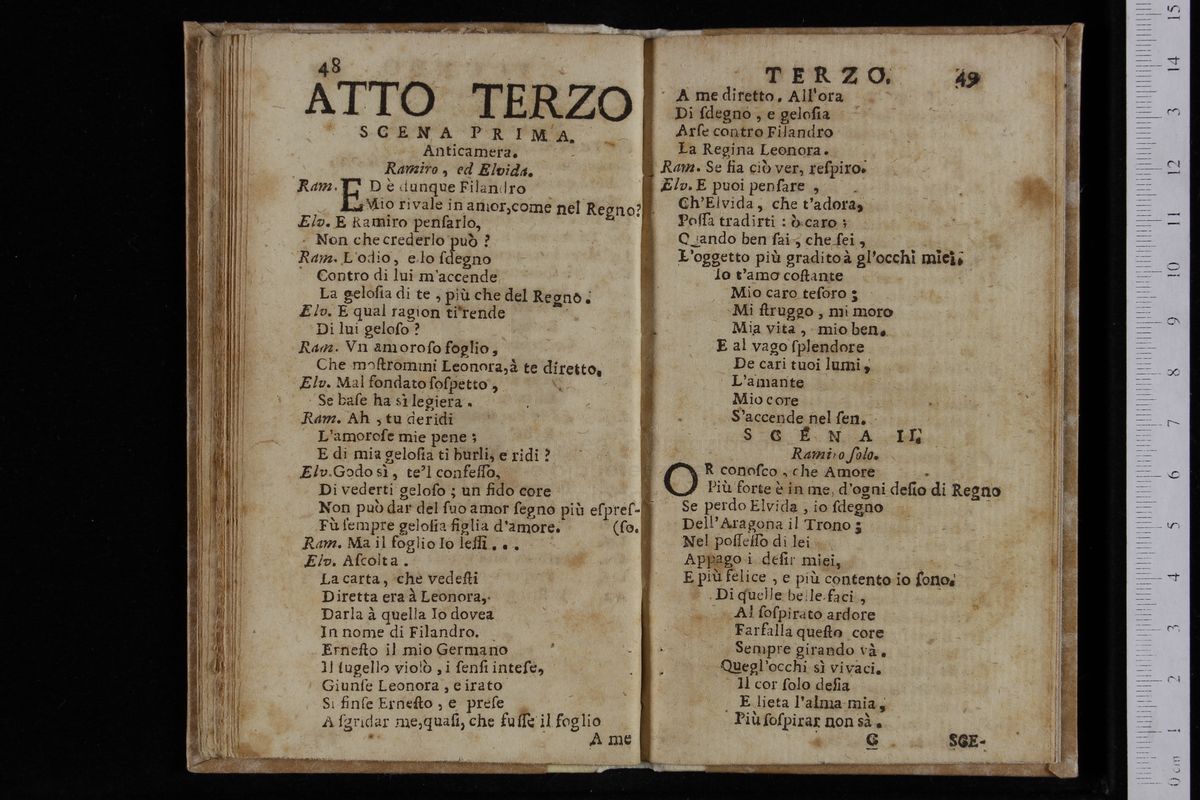 48
ATTO TERZO
SCENA PRIMA.
Anticamera.
Ramiro, ed Elvida.
Ram. ED è dunque Filandro
Mio rivale in amor, come nel Regno?
Elv. E Ramiro penſarlo,
Non che crederlo può ?
Ram. L'odio, e lo ſdegno
Contro di lui m'accende
La geloſia di te, più che del Regno.
Elv. E qual ragion ti rende
Di lui geloſo ?
Ram. Vn amoroſo foglio,
Che moſtrommi Leonora, à te diretto.
Elv. Mal fondato ſoſpetto,
Se baſe ha sì legiera.
Ram. Ah, tu deridi
L'amoroſe mie pene ;
E di mia geloſia ti burli, e ridi ?
Elv. Godo sì, te'l confeſſo,
Di vederti geloſo ; un fido core
Non può dar del ſuo amor ſegno più eſpreſ-
Fù ſempre geloſia figlia d'amore. (ſo.
Ram. Ma il foglio Io leſſi...
Elv. Aſcolta.
La carta, che vedeſti
Diretta era à Leonora,
Darla à quella Io dovea
In nome di Filandro.
Erneſto il mio Germano
Il ſugello violò, i ſenſi inteſe,
Giunſe Leonora, e irato
Si finſe Erneſto, e preſe
A ſgridar me, quaſi, che fuſſe il foglio
A me
TERZO. 49
A me diretto. All'ora
Di ſdegno, e geloſia
Arſe contro Filandro
La Regina Leonora.
Ram. Se fia ciò ver, reſpiro.
Elv. E puoi penſare,
Ch'Elvida, che t'adora,
Poſſa tradirti : ò caro ;
Quando ben ſai, che ſei,
L'oggetto più gradito à gl'occhi miei.
Io t'amo coſtante
Mio caro teſoro ;
Mi ſtruggo, mi moro
Mia vita, mio ben.
E al vago ſplendore
De cari tuoi lumi,
L'amante
Mio core
S'accende nel ſen.
SCENA II.
Ramiro ſolo.
OR conoſco, che Amore
Più forte è in me, d'ogni deſio di Regno
Se perdo Elvida, io ſdegno
Dell'Aragona il Trono ;
Nel poſſeſſo di lei
Appago i deſir miei,
E più felice, e più contento io ſono.
Di quelle belle faci,
Al ſoſpirato ardore
Farfalla queſto core
Sempre girando và.
Quegl'occhi sì vivaci.
Il cor ſolo deſia
E lieta l'alma mia,
Più ſoſpirar non sà.
G SCE-
0 cm 1 2 3 4 5 6 7 8 9 10 11 12 13 14 15